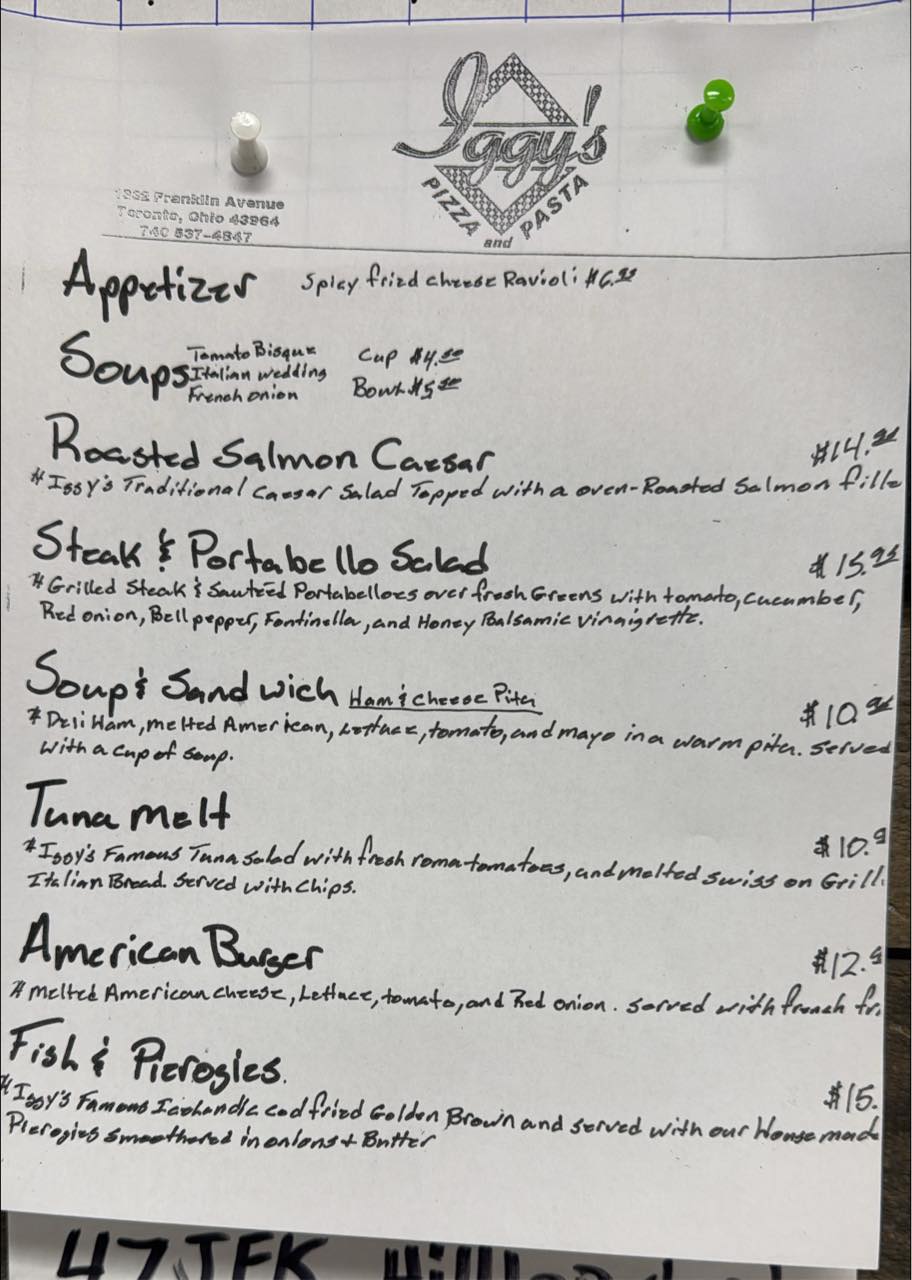 Iggy's
PIZZA and PASTA
1932 Franklin Avenue
Toronto, Ohio 43964
740 537-4847
Appetizer Spicy fried cheese Ravioli $6.95
Soups Tomato Bisque Cup $4.00
Italian wedding Bowl $5.00
French onion
Roasted Salmon Caesar $14.95
*Iggy's Traditional Caesar Salad Topped with a oven-Roasted Salmon fille
Steak & Portabello Salad $15.95
*Grilled Steak & Sautéed Portabelloes over fresh Greens with tomato, cucumber,
Red onion, Bell pepper, Fontinella, and Honey Balsamic Vinaigrette.
Soup & Sandwich Ham & Cheese Pita $10.95
*Deli Ham, melted American, Lettuce, tomato, and mayo in a warm pita. Served
with a cup of soup.
Tuna Melt $10.9
*Iggy's Famous Tuna salad with fresh roma tomatoes, and melted swiss on Grill
Italian Bread. Served with Chips.
American Burger $12.9
*Melted American cheese, Lettuce, tomato, and Red onion. Served with french fr
Fish & Pierogies $15.
*Iggy's Famous Icelandic cod fried Golden Brown and served with our House made
Pierogies smoothered in onions + Butter
47 JFK